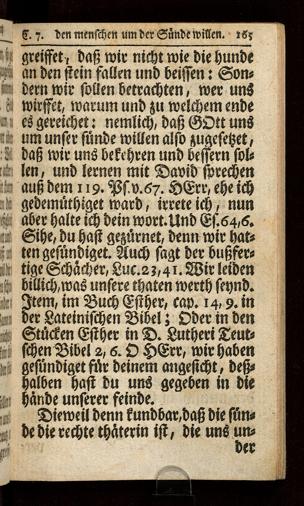 C. 7. den menschen um der Sünde willen. 165
greiffet, daß wir nicht wie die hunde
an den stein fallen und beissen: Son-
dern wir sollen betrachten, wer uns
wirffet, warum und zu welchem ende
es gereichet: nemlich, daß GOtt uns
um unser sünde willen also zugesetzet,
daß wir uns bekehren und bessern sol-
len, und lernen mit David sprechen
auß dem 119. Ps. v. 67. HErr, ehe ich
gedemüthiget ward, irrete ich, nun
aber halte ich dein wort. Und Es. 64, 6.
Sihe, du hast gezürnet, denn wir hat-
ten gesündiget. Auch sagt der bußfer-
tige Schächer, Luc. 23, 41. Wir leiden
billich, was unsere thaten werth seynd.
Item, im Buch Esther, cap. 14, 9. in
der Lateinischen Bibel; Oder in den
Stücken Esther in D. Lutheri Teut-
schen Bibel 2, 6. O HErr, wir haben
gesündiget für deinem angesicht, deß-
halben hast du uns gegeben in die
hände unserer feinde.
Dieweil denn kundbar, daß die sün-
de die rechte thäterin ist, die uns un-
der